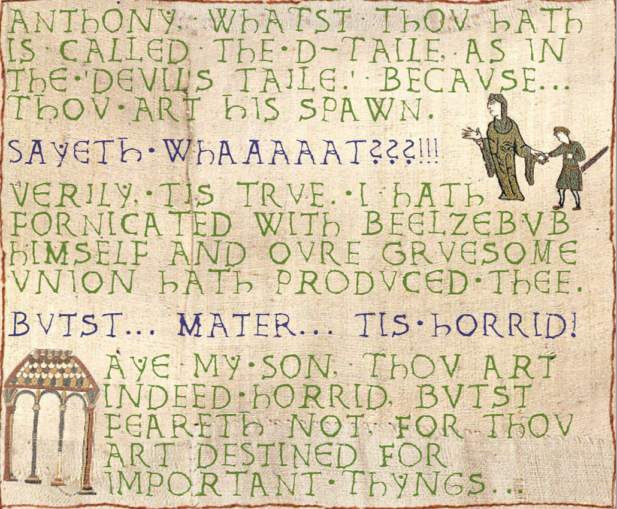 ANThONY, WhATST ThOV hATh
IS CALLED ThE·D-TAILE, AS IN
ThE·'DEVILS TAILE.' BECAVSE...
ThOV·ART hIS SPAWN.
SAYETh·WhAAAAAT???!!!
VERILY,·TIS TRVE.·I hATh
FORNICATED WITh BEELZEBVB
hIMSELF AND OVRE GRVESOME
VNION hATh PRODVCED·ThEE.
BVTST... MATER... TIS·hORRID!
AYE MY·SON, ThOV ART
INDEED·hORRID, BVTST
FEARETh NOT FOR ThOV
ART DESTINED FOR
IMPORTANT·ThYNGS...